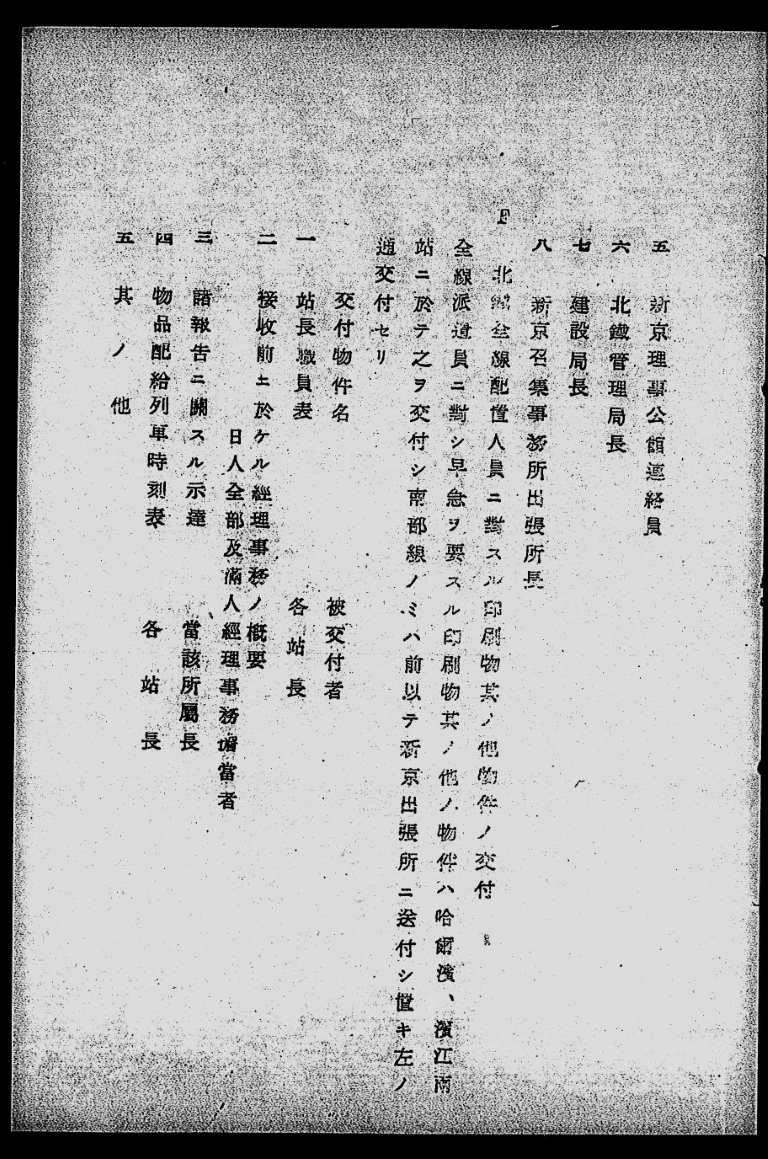 五　新京理事公館連絡員
六　北鐵管理局長
七　建設局長
八　新京召集事務所出張所長
北鐵全線配置人員ニ對スル印刷物其ノ他物件ノ交付
全線派遣員ニ對シ早急ヲ要スル印刷物其ノ他ノ物件ハ哈爾濱、濱江兩
站ニ於テ之ヲ交付シ南部線ノミハ前以テ新京出張所ニ送付シ置キ左ノ
通交付セリ
交付物件名　被交付者
一　站長職員表　各站長
二　接收前ニ於ケル經理事務ノ概要
日人全部及滿人經理事務擔當者
三　諸報告ニ關スル示達　當該所屬長
四　物品配給列車時刻表　各站長
五　其ノ他